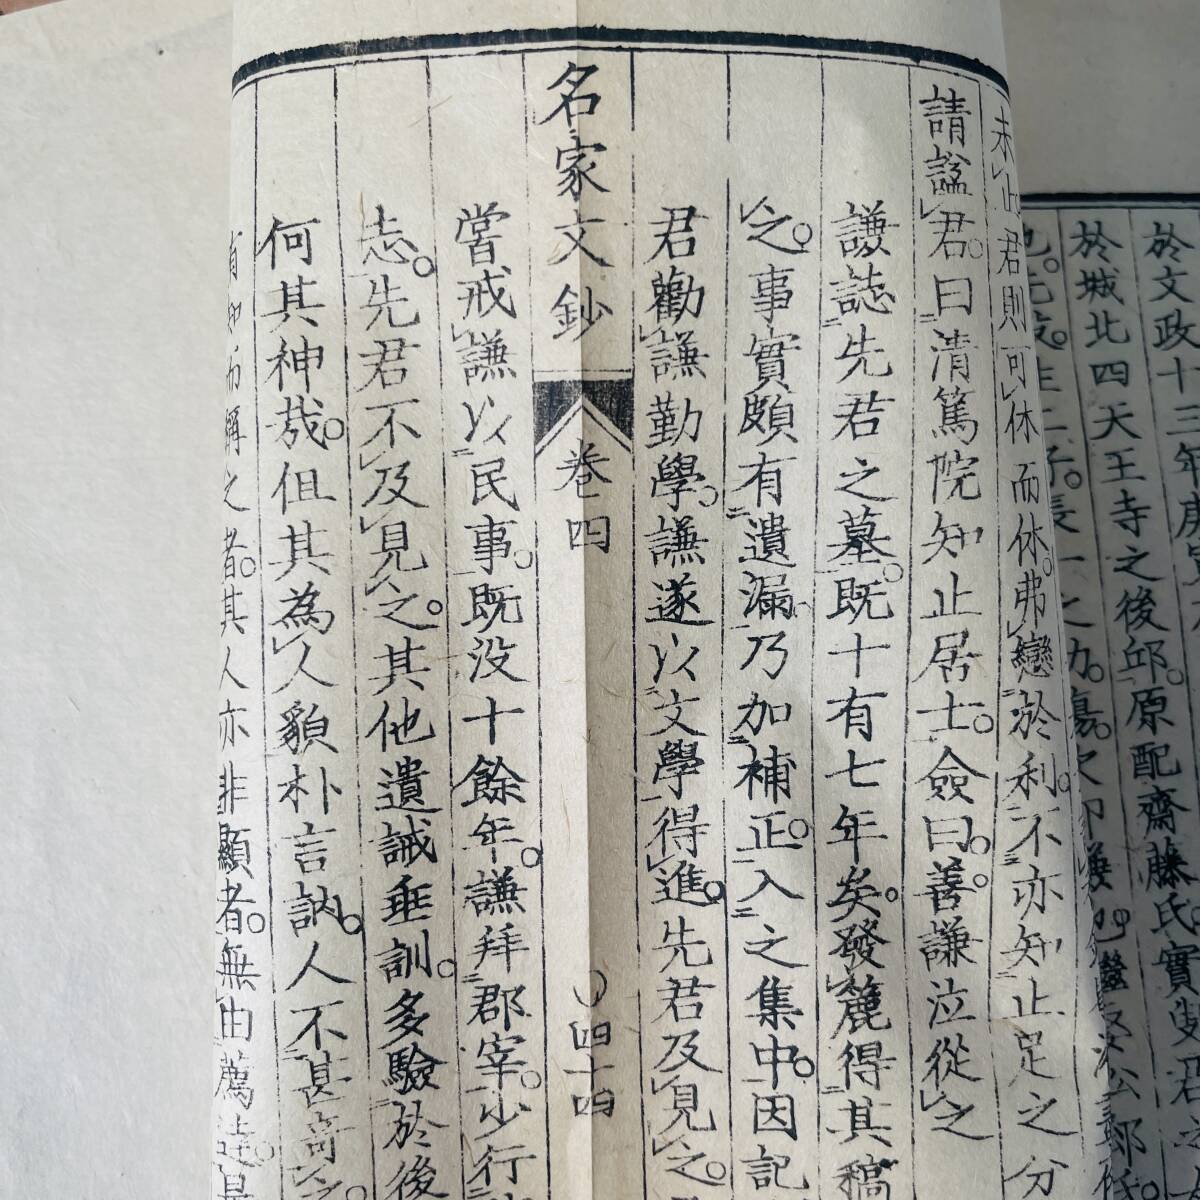 於文政十三年庚
於城北四天王寺之後邱。原配齋藤氏實
君則可休而休。弗戀於利。不亦知止足之分
請謚君。君曰清篤院知止居士。僉曰。善。謙泣從之
謙誌先君之墓。既十有七年矣。發簏得其稿
之。事實頗有遺漏。乃加補正。入之集中。因記
君勸謙勤學。謙遂以文學得進。先君及見之。
名家文鈔 卷四 四十四
嘗戒謙以民事。既没十餘年。謙拜郡宰。少行
志。先君不及見之。其他遺誡垂訓。多驗於後
何其神哉。但其為人貌朴言訥。人不甚奇之。
而稱之者。其人亦非顯者。無由薦達。